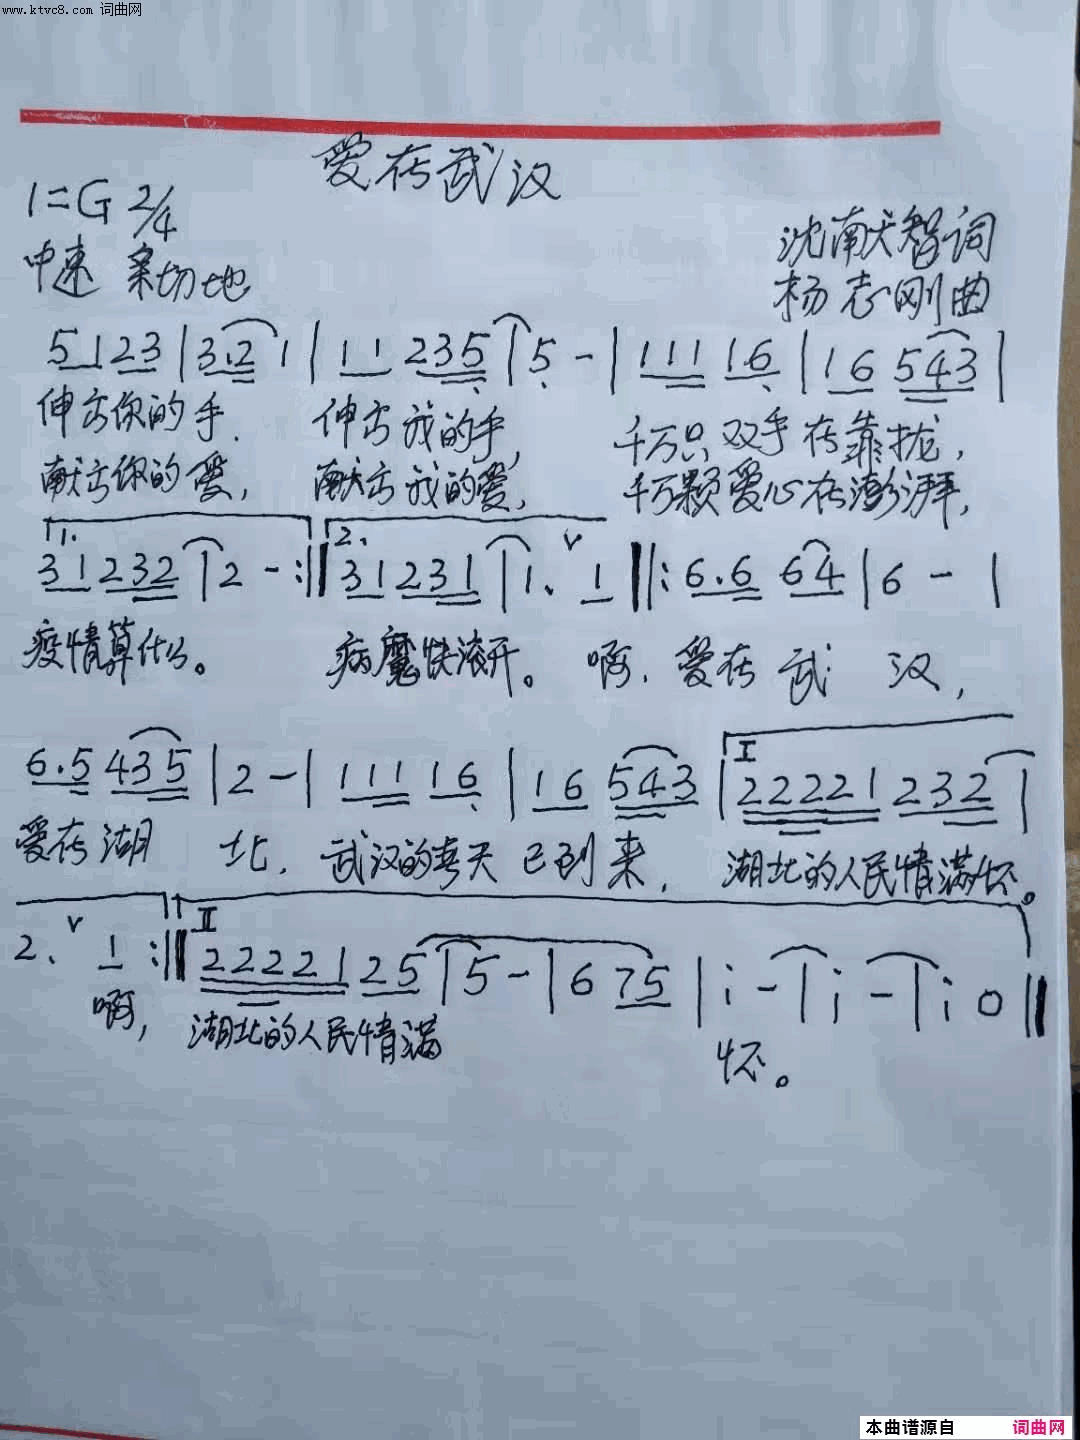 www.ktvc8.com 词曲网
爱在武汉
1=G 2/4
中速 亲切地
沈南犬智词
杨志刚曲
5 1 2 3 | 3.2 1 | 1 1 2 3 5 | 5 - | 1 1 1 1 6 | 1 6 5 4 3 |
伸出你的手, 伸出我的手, 千万只双手在靠拢,
献出你的爱, 献出我的爱, 千万颗爱心在澎湃,
1. 3 1 2 3 2 | 2 - :‖ 2. 3 1 2 3 1 | 1. V 1 ‖: 6.6 6 4 | 6 - |
疫情算什么。 病魔快滚开。 啊, 爱在武汉,
6.5 4 3 5 | 2 - | 1 1 1 1 6 | 1 6 5 4 3 | I 2 2 2 2 1 2 3 2 |
爱在湖北, 武汉的春天已到来, 湖北的人民情满怀。
2. V 1 :‖ II 2 2 2 2 1 2 5 | 5 - | 6 7 5 | i - | i - | i 0 ‖
啊, 湖北的人民情满 怀。
本曲谱源自 词曲网